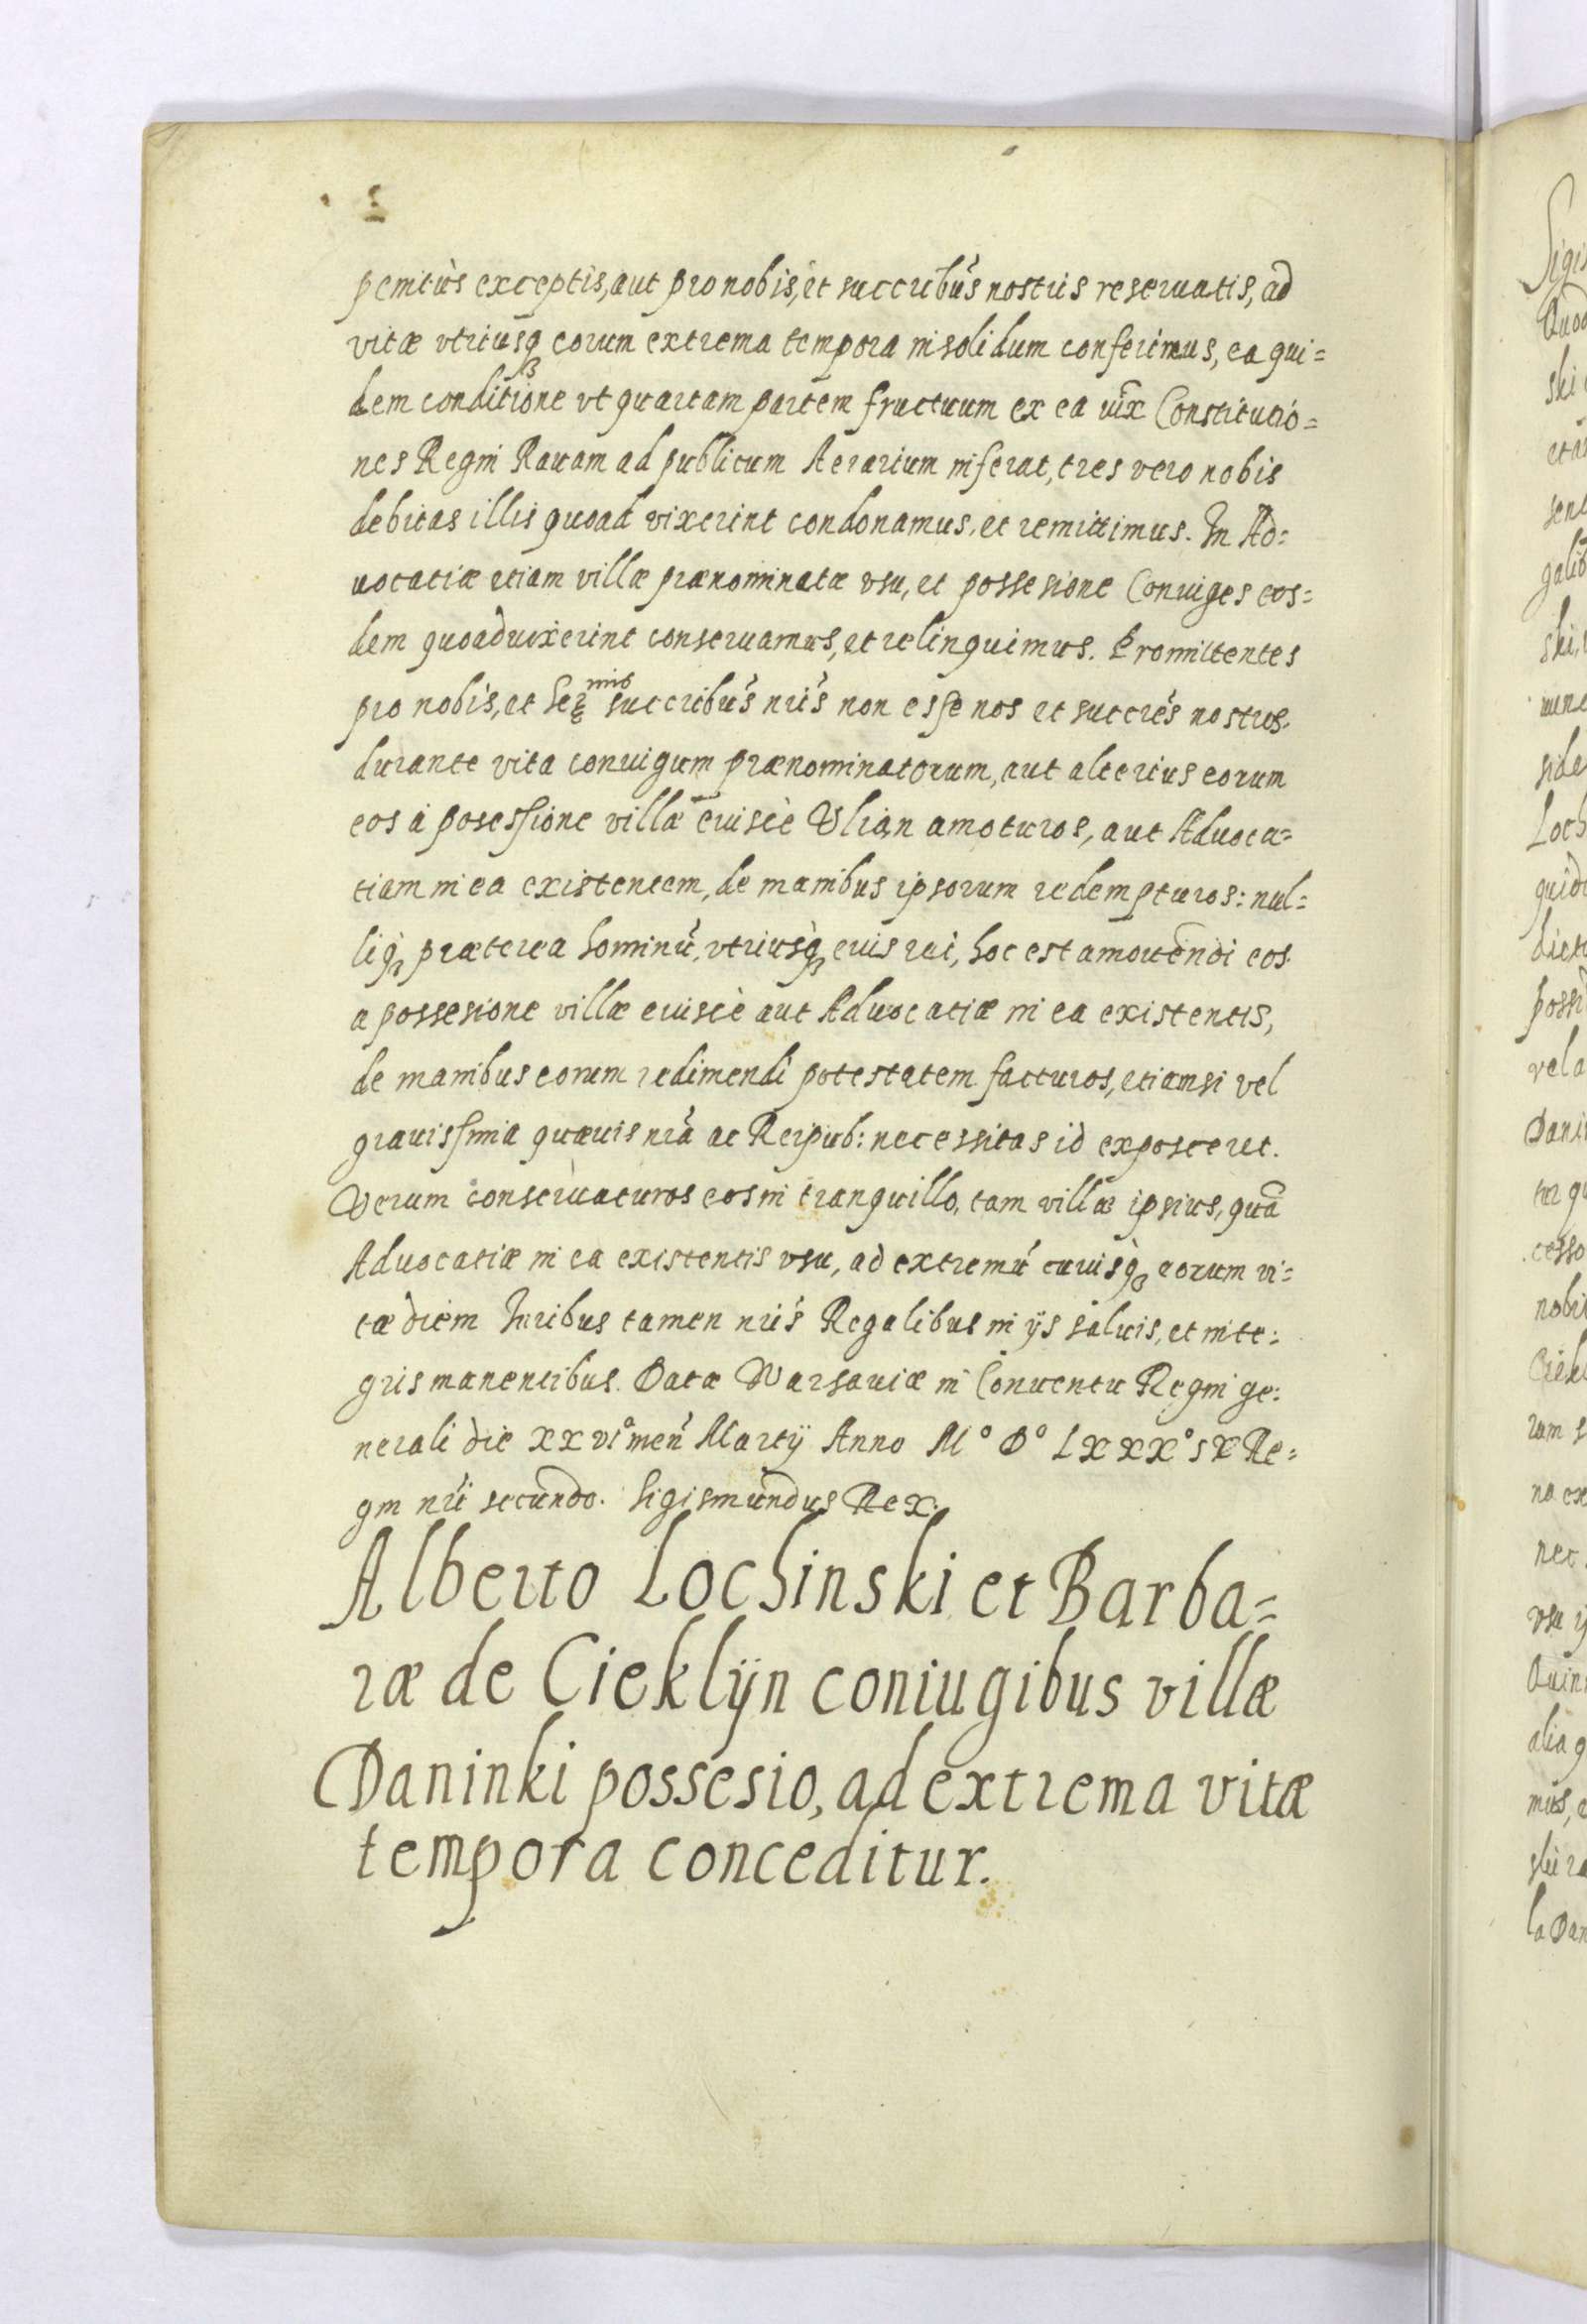 penitùs exceptis, aut pro nobis, et succribús nostris reseruatis, ad
vitæ vtriusq₃ eorum extrema tempora insolidum conferimus, ea qui=
dem conditione vt quartam partem fructuum ex ea iux̃ Constitutio=
nes Regni Rauam ad publicum Aerarium inferat, tres vero nobis
debitas illis quoad vixerint condonamus, et remittimus. In Ad=
uocatiæ etiam villæ prænominatæ vsu, et possesione Coniuges eos=
dem quoad uixerint conseruamus, et relinquimus. Promittentes
pro nobis, et Ser mis succribús nris non esse nos et succrés nostros
durante vita coniugum prænominatorum, aut alterius eorum
eos à posessione villæ eiuscè Vlian amoturos, aut Aduoca=
tiam in ea existentem, de manibus ipsorum redempturos: nul=
liq₃ præterea hominú, vtriusq₃ euis rei, hoc est amouendi eos
a possesione villæ eiuscè aut Aduocatiæ in ea existentis,
de manibus eorum redimendi potestatem facturos, etiamsi vel
grauissima quæuis nrã ac Reipub: necessitas id exposceret.
Verum conseruaturos eos in tranquillo, tam villæ ipsius, quã
Aduocatiæ in ea existentis vsu, ad extremú cuiusq₃ eorum vi=
tæ diem Iuribus tamen nris Regalibus in ijs saluis, et inte=
gris manentibus. Datæ Warsauiæ in Conuentu Regni ge=
nerali die xxvi° men̄ Martij Anno M° D° Lxxx° ix Re=
gni nri secundo. Sigismundus Rex.
Alberto Lochinski et Barba=
ræ de Cieklÿn coniugibus villæ
Daninki possesio, ad extrema vitæ
tempora conceditur.